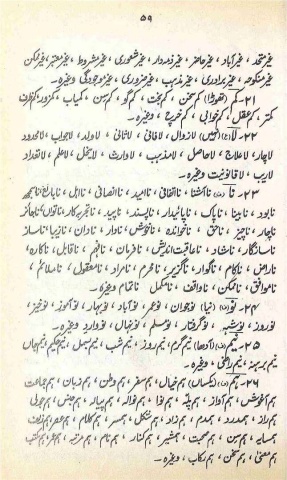 ۵۹
غیر متحد، غیر آباد، غیر حاضر، غیر ذمہ دار، غیر شعوری، غیر مشروط، غیر معتبر، غیر ممکن
غیر منکوحہ، غیر برادری، غیر مذہب، غیر ضروری، غیر موجودگی وغیرہ۔
۲۱۔ کم (تھوڑا) کم سخن، کم بخت، کم گو، کم سن، کمیاب، کمزور، کم ظرف
کمتر، کم عقل، کم خوابی، کم خرچ، وغیرہ۔
۲۲۔ لا (نہیں) لازوال، لافانی، لاثانی، لاولد، لاجواب، لامحدود
لاچار، لاعلاج، لاحاصل، لامذہب، لاوارث، لاعلم، لاتعداد
لاریب، لاقانونیت وغیرہ۔
۲۳۔ نا ناآشنا، نااتفاقی، ناامید، ناانصافی، نااہل، نابالغ، ناسمجھ
نابود، نابینا، ناپاک، ناپائیدار، ناپسند، ناپید، ناتجربہ کار، ناتواں، ناجائز
ناچار، ناچیز، ناحق، ناخواندہ، ناخوش، نادار، نادان، نازیبا، ناساز
ناسازگار، ناشاد، ناعاقبت اندیش، نافرمان، نافہم، ناقابل، ناکارہ،
ناراض، ناکام، ناگوار، ناگزیر، نامحرم، نامراد، نامعقول، ناملائم،
ناموافق، ناممکن، ناواقف، نامکمل، ناتمام وغیرہ۔
۲۴۔ نو (نیا) نوجوان، نوعمر، نوآباد، نوبہار، نوآموز، نوخیز،
نوروز، گرفتار، نومسلم، نونہال، نووارد وغیرہ۔
۲۵۔ نیم (آدھا) نیم گرم، نیم روز، نیم شب، نیم بسمل، نیم حکیم، نیم جاں
نیم برہنہ، نیم راضی، وغیرہ۔
۲۶۔ ہم (یکساں) ہم خیال، ہم سفر، ہم وطن، ہم زبان، ہم جماعت
ہم آغوش، ہم آواز، ہم پلہ، ہم نوا، ہم نوالہ، ہم پیالہ، ہم جنس، ہم جولی
ہمراز، ہمدرد، ہمدم، ہم زاد، ہم شکل، ہمسر، ہم کلام، ہم عمر، ہم زلف
ہمسایہ، ہم سن، ہم صحبت، ہم شیر، ہم کنار، ہم نام، ہم مرتبہ، ہم عصر، ہم مکتب
ہم معنی، ہم سخن، ہم رکاب، وغیرہ۔